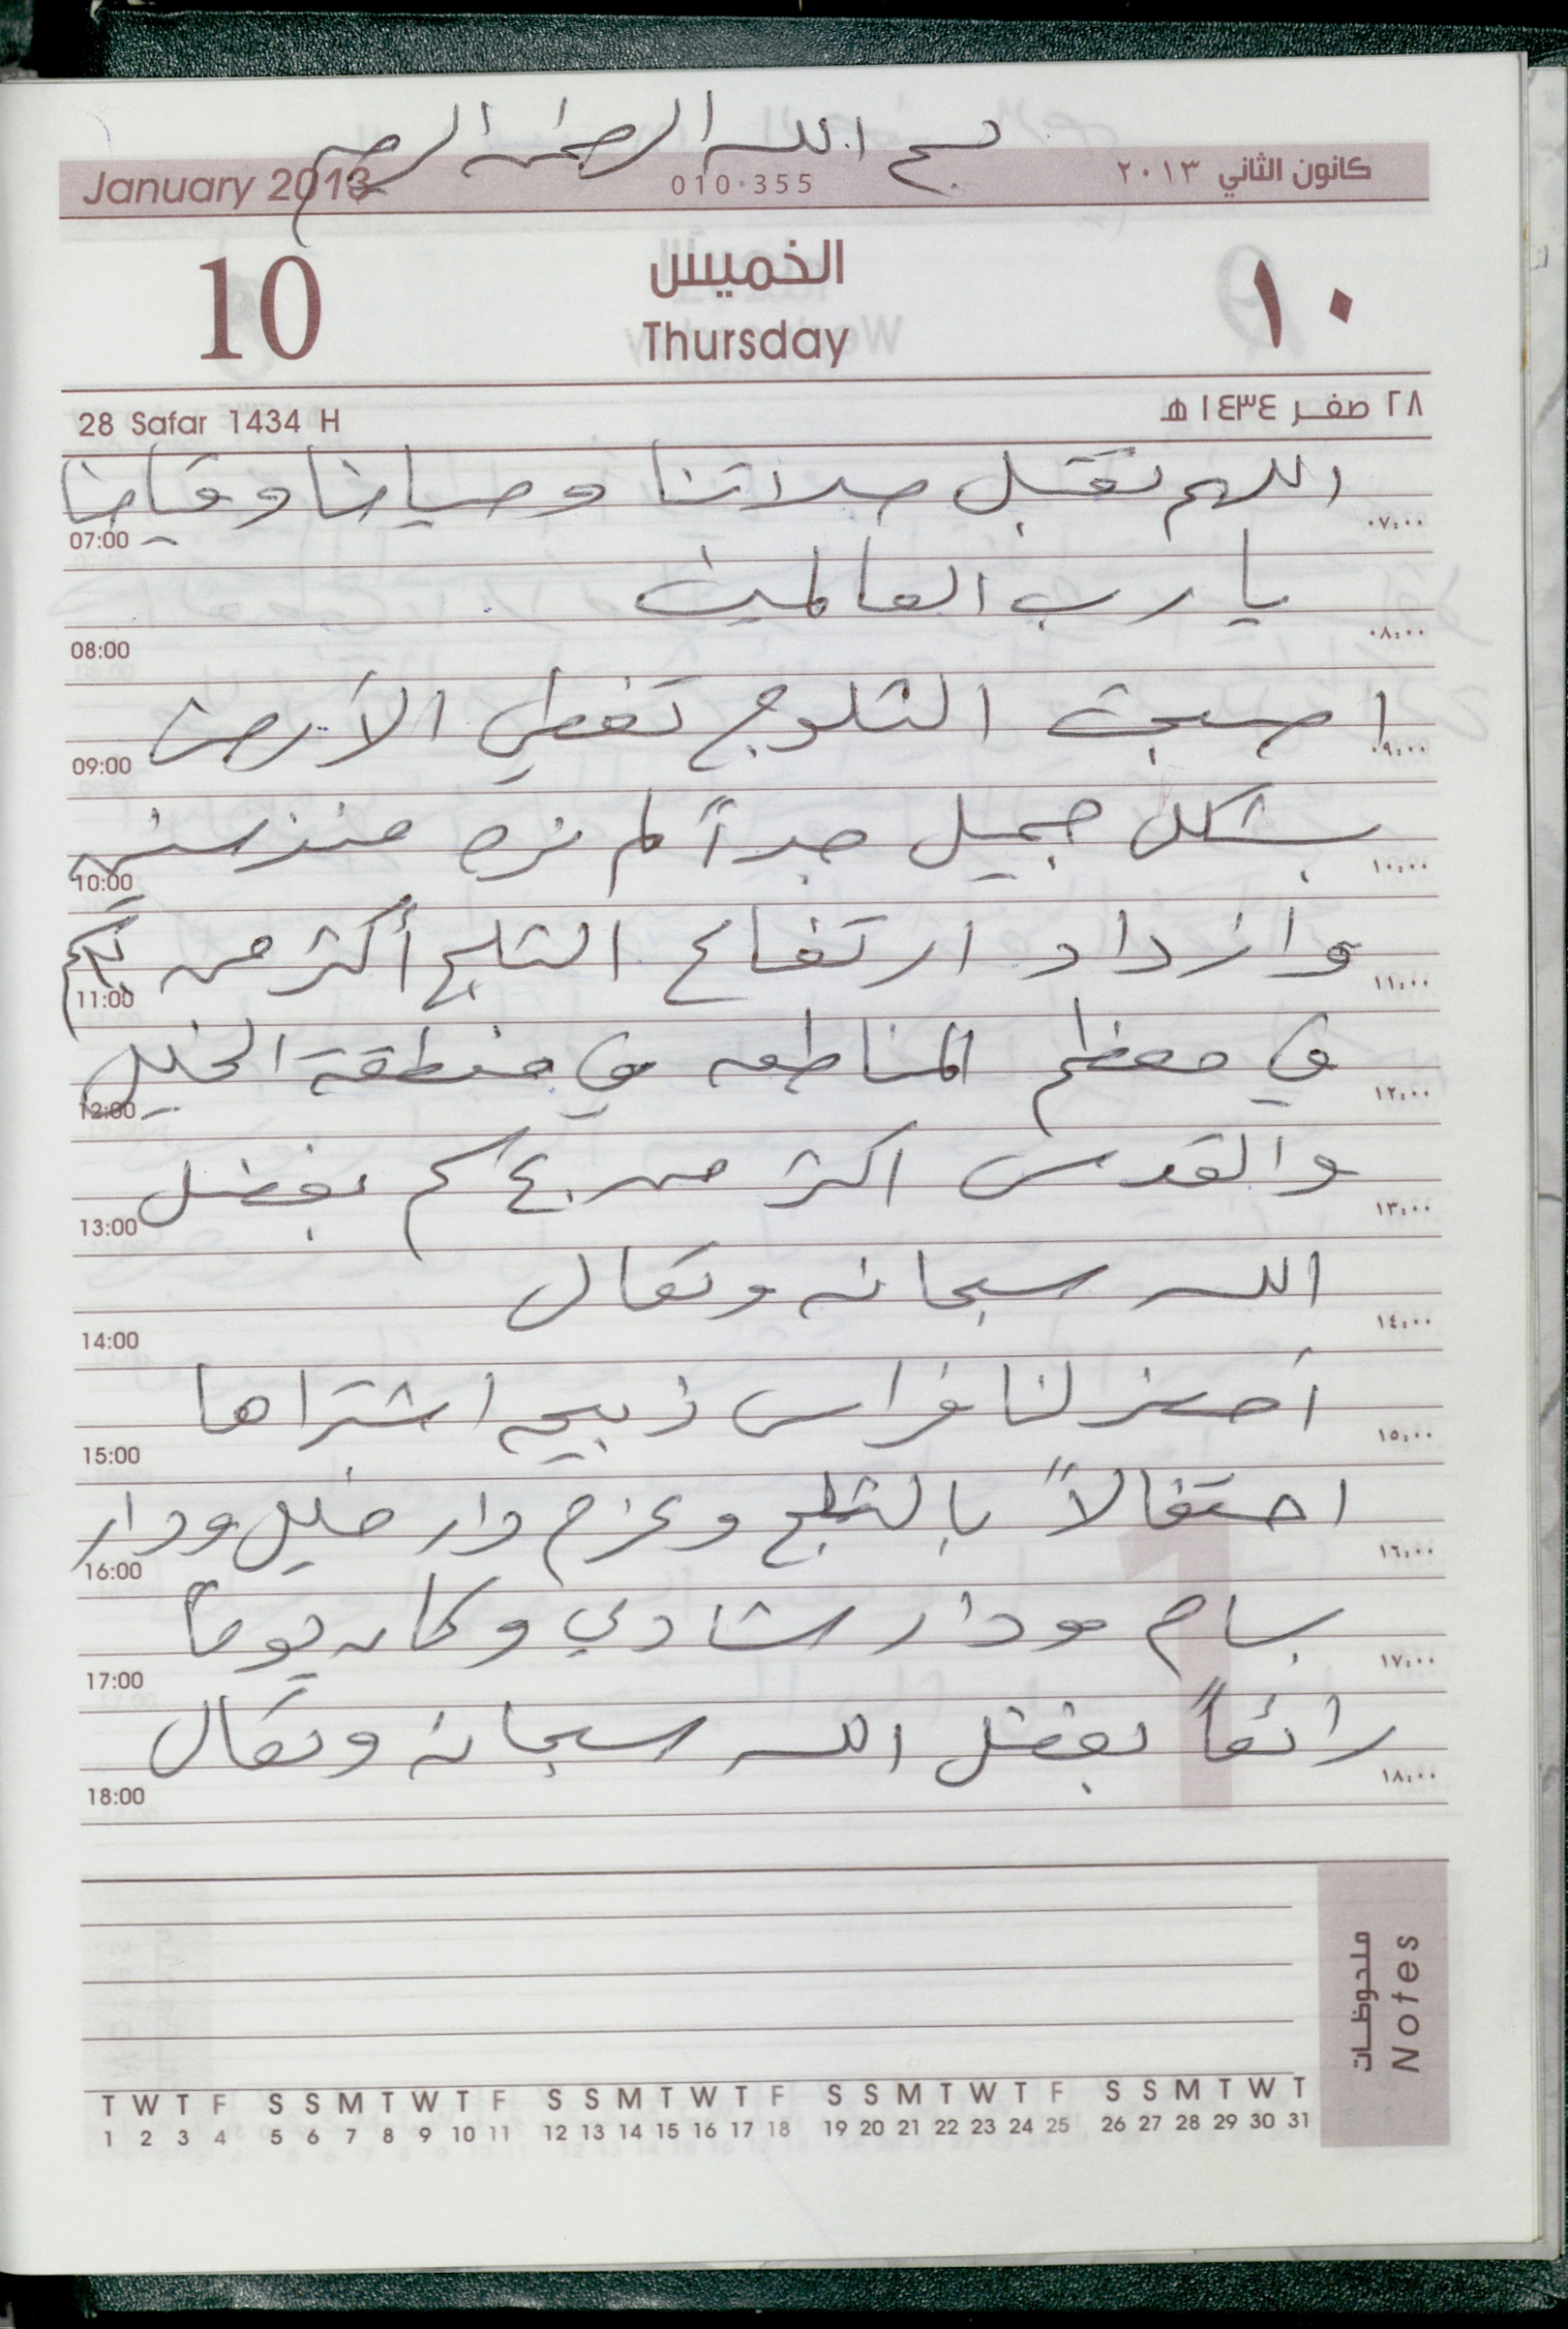 بسم الله الرحمن الرحيم
January 2013 010·355 كانون الثاني ٢٠١٣
10 الخميس ١٠
Thursday
28 Safar 1434 H ٢٨ صفر ١٤٣٤ هـ
اللهم تقبل صلاتنا وصيامنا وقيامنا
07:00 ٠٧:٠٠
يا رب العالمين
08:00 ٠٨:٠٠
اصبحت الثلوج تغطي الأرض
09:00 ٠٩:٠٠
بشكل جميل جداً لم نره منذ سنين
10:00 ١٠:٠٠
وازداد ارتفاع الثلج أكثر من
11:00 ١١:٠٠
في معظم المناطق في منطقة الخليل
12:00 ١٢:٠٠
والقدس اكثر من ٤٠ سم بفضل
13:00 ١٣:٠٠
الله سبحانه وتعالى
14:00 ١٤:٠٠
أحضر لنا فراس ذبيحه اشتراها
15:00 ١٥:٠٠
احتفالاً بالثلج وعزم دار خليل ودار
16:00 ١٦:٠٠
بسام ودار شادي وكان يوماً
17:00 ١٧:٠٠
رائعاً بفضل الله سبحانه وتعالى
18:00 ١٨:٠٠
ملحوظات
Notes
T W T F S S M T W T F S S M T W T F S S M T W T F S S M T W T
1 2 3 4 5 6 7 8 9 10 11 12 13 14 15 16 17 18 19 20 21 22 23 24 25 26 27 28 29 30 31